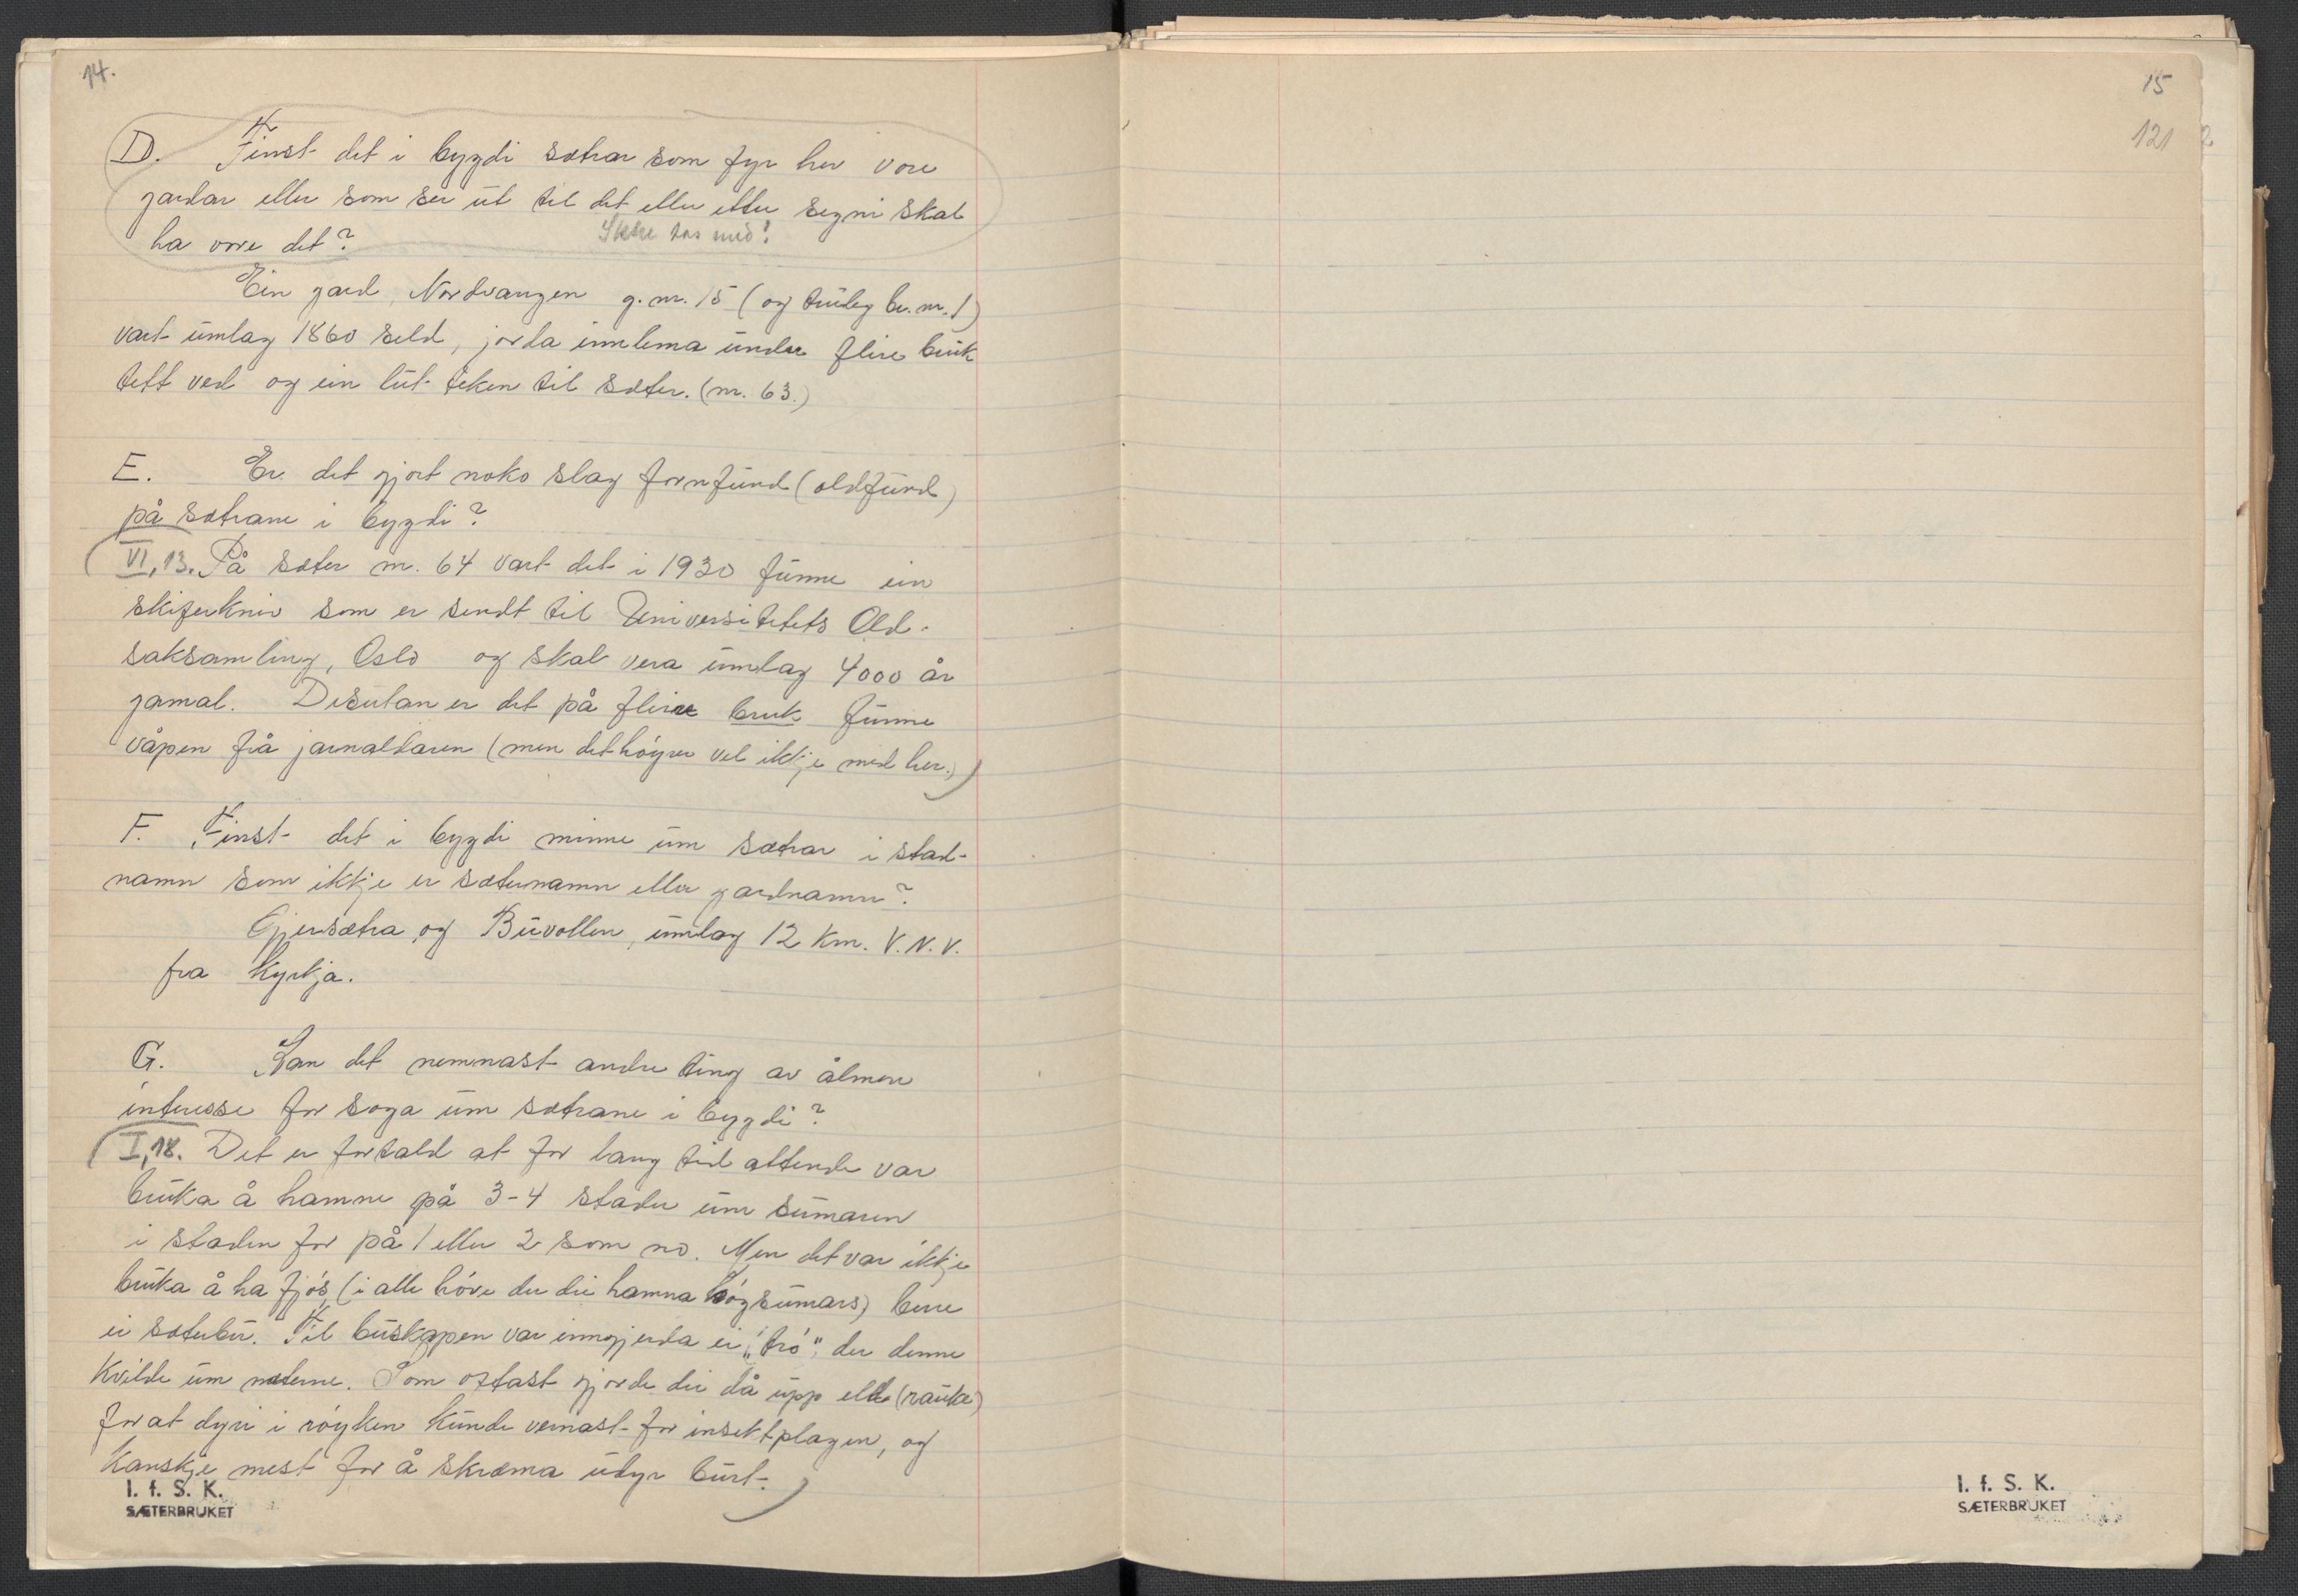 14.
D. Finst det i bygdi sætrar som fyr hev vore
gardar eller som ser ut til det eller etter segni skal
ha vore det? Ikke tas med!
Ein gard, Nordvangen g.nr. 15 (og truleg br.nr. 1)
vart umlag 1860 seld, jorda innlema under fleire bruk
tett ved og ein lut teken til sæter. (nr. 63.)
E. Er det gjort noko slag fornfund (oldfund)
på sætrane i bygdi?
VI, 13. På sæter nr. 64 vart det i 1930 funne ein
skiferkniv som er sendt til Universitetets Old-
saksamling, Oslo og skal vera umlag 4000 år
gamal. Desutan er det på fleire bruk funne
våpen frå jarnaldaren (men det höyrer vel ikkje med her.)
F. Finst det i bygdi minne um sætrar i stad-
namn som ikkje er sæternamn eller gardnamn?
Gjersætra og Buvollen, umlag 12 km. V.N.V.
fra kyrkja.
G. Kan det nemnast andre ting av ålmen
interesse for soga um sætrane i bygdi?
I, 18. Det er fortald at for lang tid attende var
bruka å hamne på 3-4 stader um sumaren
i staden for på 1 eller 2 som no. Men det var ikkje
bruka å ha fjós, (i alle höve der dei hamna högsumars) berre
ei sæterbu. Til buskapen var inngjerda ei "tró", der denne
kvilde um næterne. Som oftast gjorde dei då upp eld (rauke)
for at dyri i röyken kunde vernast for insektplagen, og
kanskje mest for å skræma udyr burt.
I. f. S. K.
SÆTERBRUKET
15
121
2
I. f. S. K.
SÆTERBRUKET